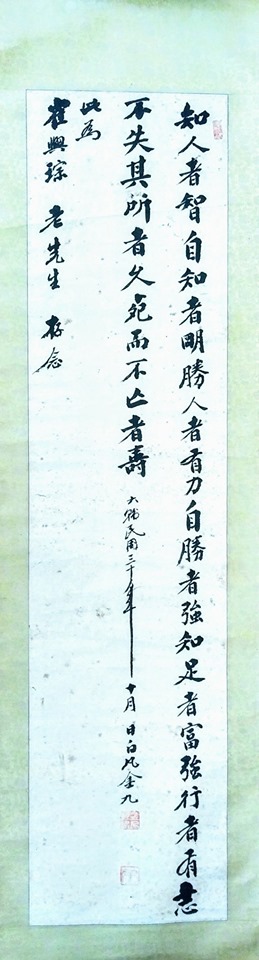 知人者智自知者明勝人者有力自勝者強知足者富強行者有志
不失其所者久死而不亡者壽 大韓民國三十年十月 日白凡金九
此為
崔興琮 老先生 存念